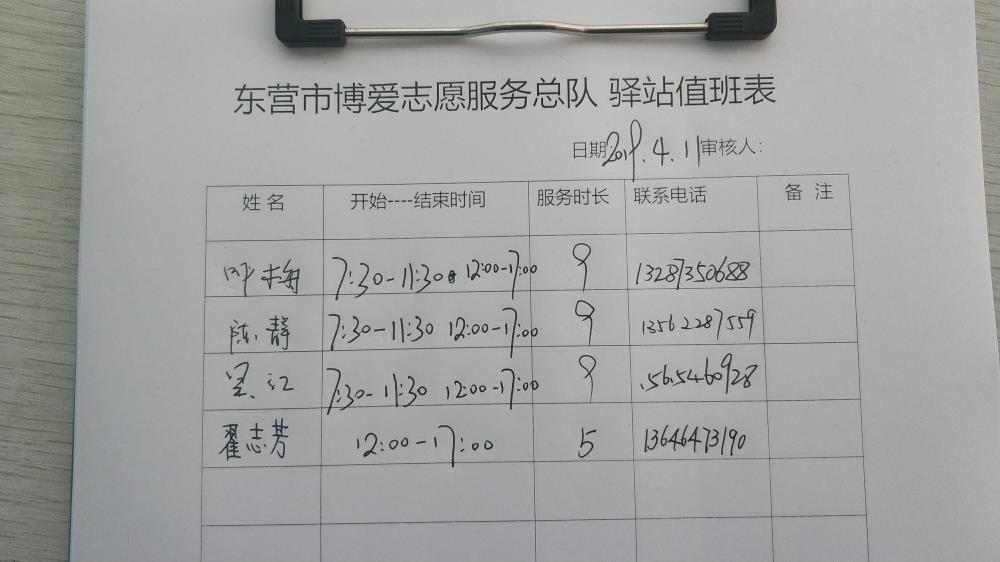 东营市博爱志愿服务总队 驿站值班表
日期2019.4.11审核人:
姓名 开始----结束时间 服务时长 联系电话 备 注
叶梅 7:30-11:30 12:00-17:00 9 13287350688
陈静 7:30-11:30 12:00-17:00 9 13562287559
江 7:30-11:30 12:00-17:00 9 15615460928
翟志芳 12:00-17:00 5 13646473190